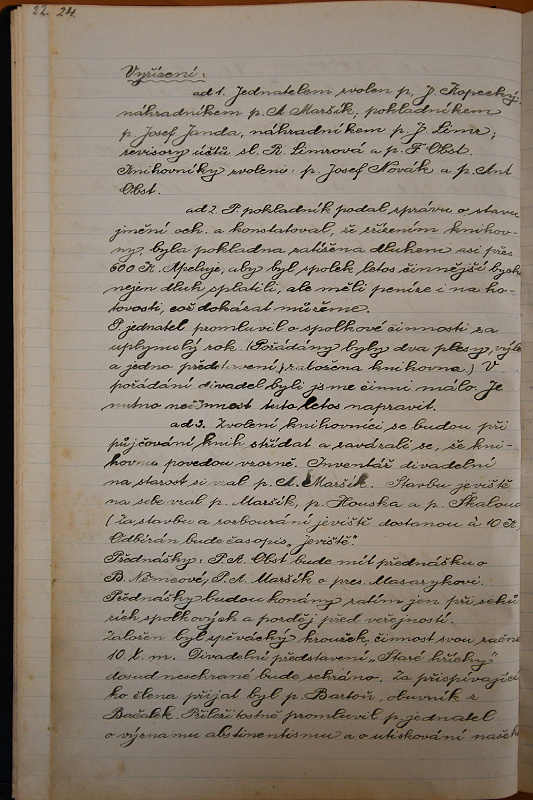 22. 24.
Vyřízení:
ad 1. Jednatelem zvolen p. J. Kopecký,
náhradníkem p. A Maršík; pokladníkem
p. Josef Janda, náhradníkem p. J. Limr;
revisory účtů sl. R. Limrová a p. F Obst.
Knihovníky zvoleni: p. Josef Novák a p. Ant
Obst.
ad 2. P. pokladník podal zprávu o stavu
jmění och. a konstatoval, že zřízením knihov-
ny byla pokladna zatížena dluhem asi přes
600 K. Apeluje, aby byl spolek letos činnější bych
nejen dluh splatili, ale měli peníze i na ho-
tovosti, což dokázat můžeme.
P. jednatel promluvil o spolkové činnosti za
uplynulý rok. (Pořádány byly dva plesy, výle
a jedno představení, založena knihovna.) V
pořádání divadel byli jsme činni málo. Je
nutno nečinnost tuto letos napravit.
ad 3. Zvolení knihovníci se budou při
půjčování knih střídat a zavázali se, že kni-
hovnu povedou vzorně. Inventář divadelní
na starost si vzal p. A. Maršík. Stavbu jeviště
na sebe vzal p. Maršík, p. Houska a p. Skalou
(Za stavbu a rozbourání jeviště dostanou à 10 K)
Odbírán bude časopis „jeviště".
Přednášky: P. A. Obst bude mít přednášku o
B. Němcové, P. A. Maršík o pres. Masarykovi.
Přednášky budou konány zatím jen při schů
zích spolkových a později před veřejností.
Založen byl spěvácký kroužek, činnost svou začne
10. X. m. Divadelní představení „Staré hříchy"
dosud nesehrané bude sehráno. Za přispívající
ho člena přijal byl p. Bartoň, obuvník z
Bačalek. Příležitostně promluvil p. jednatel
o významu abstinentismu a o utiskování naše